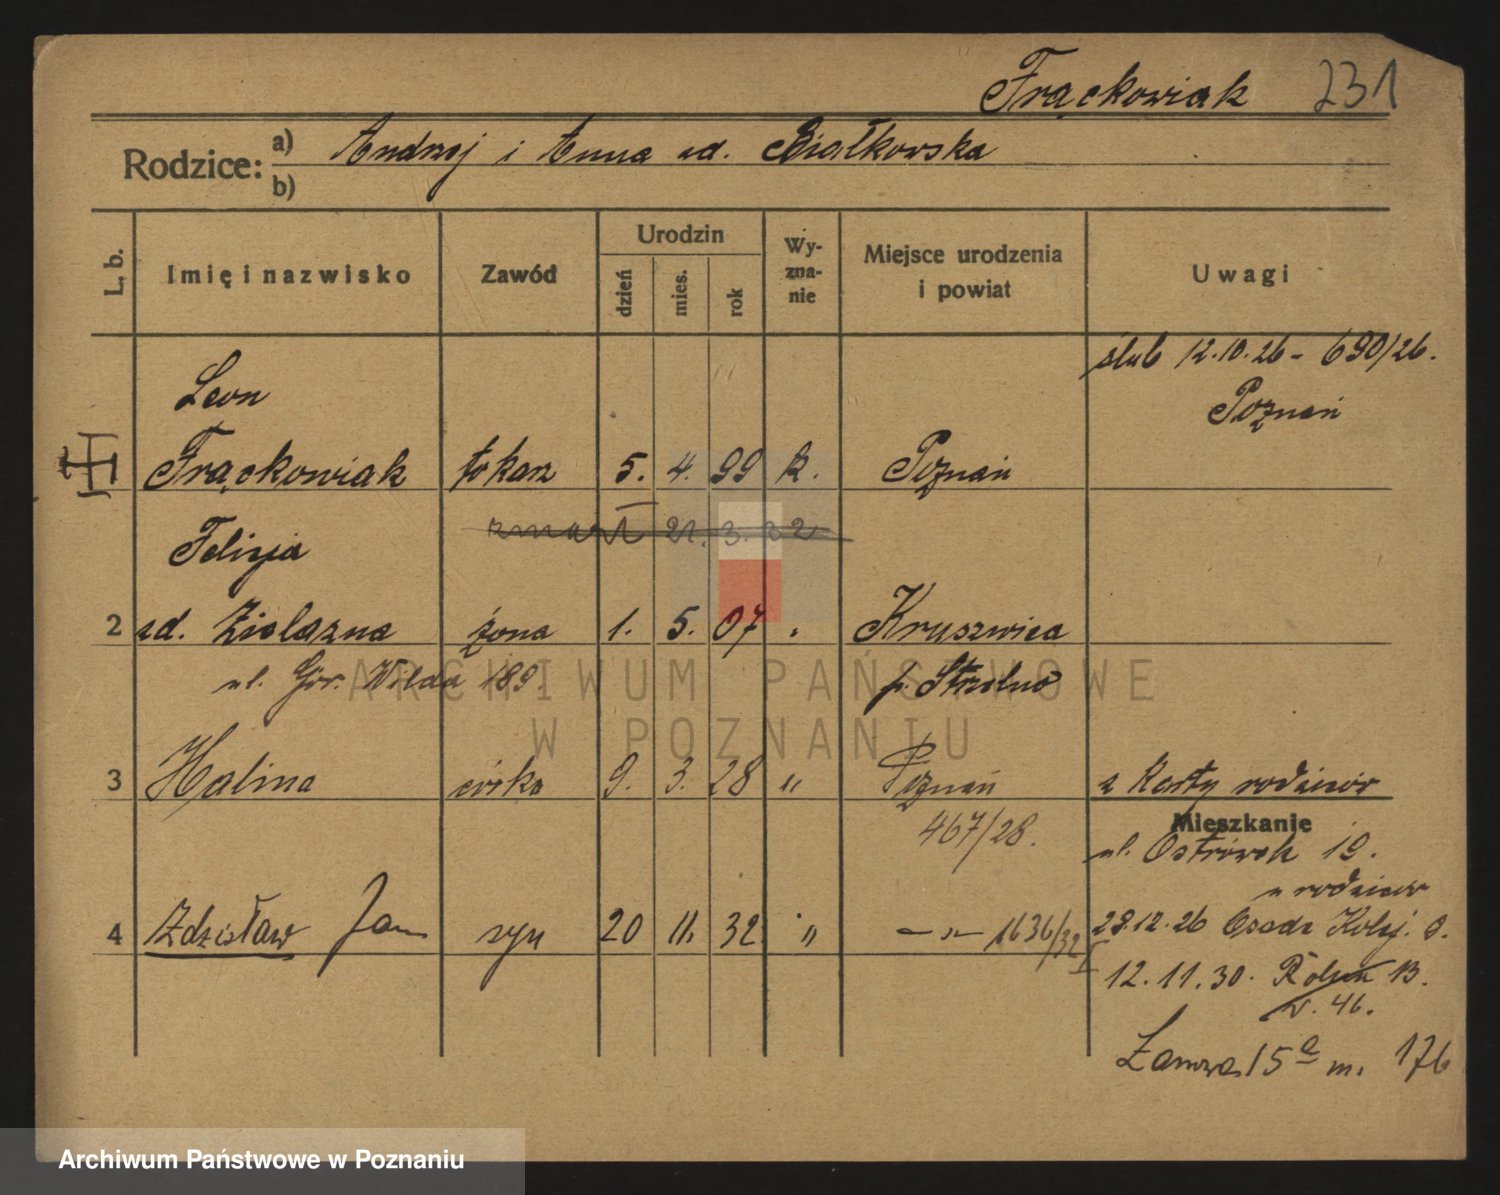 Frąckowiak 231
Rodzice: a) Andrzej i Anna zd. Białkowska
b)
L. b. Imię i nazwisko Zawód Urodzin dzień mies. rok Wy-zna-nie Miejsce urodzenia i powiat Uwagi
ślub 12.10.26 - 690/26.
Poznań
Leon
Frąckowiak tokarz 5. 4. 99 k. Poznań
zmarł 21. 3. 32
Felicja
2 zd. Zielazna żona 1. 5. 07 " Kruszwica
ul. Gór. Wilda 189. p. Strzelno
ARCHIWUM PAŃSTWOWE
W POZNANIU
3 Halina córka 9. 3. 28 " Poznań z karty rodziców
467/28.
Mieszkanie
ul. Ostrówek 19.
u rodziców
4 Zdzisław Jan syn 20 11. 32 " - " - 1636/32 I
28.12.26 Osada Kolej. 8.
12.11.30. 13.
w. 46.
15a m. 176
Archiwum Państwowe w Poznaniu